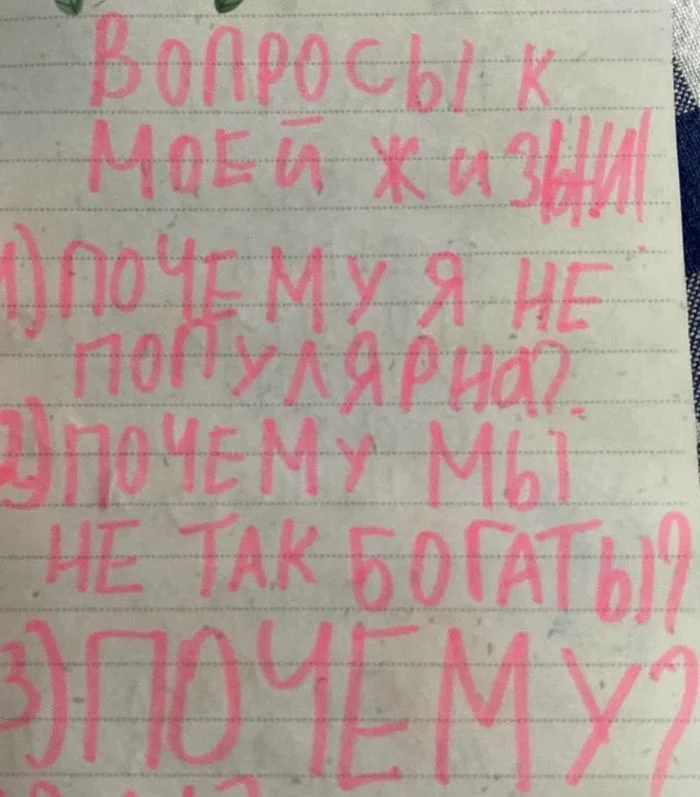 ВОПРОСЫ К
МОЕЙ ЖИЗНИ
1) ПОЧЕМУ Я НЕ
ПОПУЛЯРНА?
2) ПОЧЕМУ МЫ
НЕ ТАК БОГАТЫ?
3) ПОЧЕМУ?